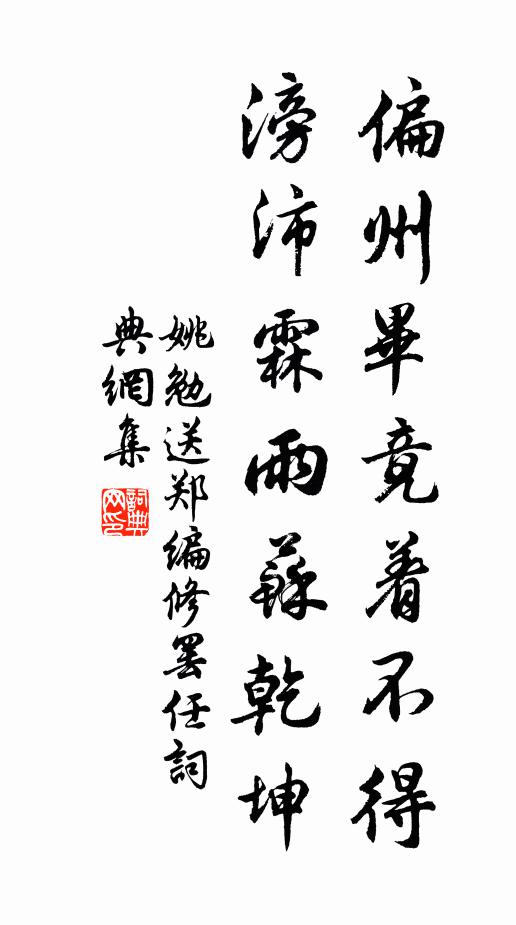 偏州畢竟着不得
滂沛霖雨蘇乾坤
姚勉送郑编修罢任詞
典網集
詞典网印